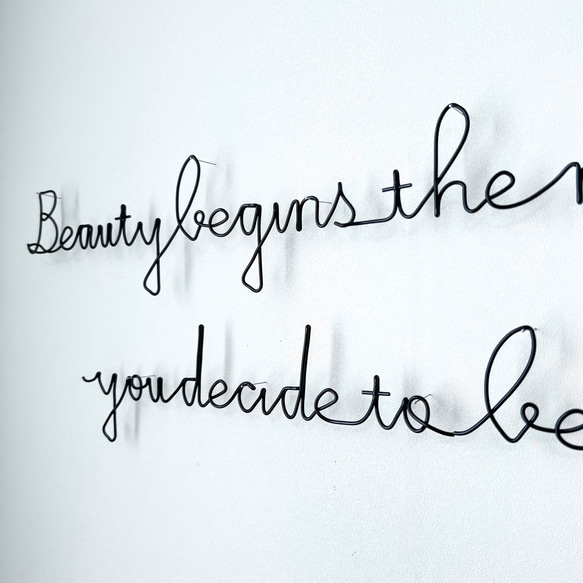 Beauty begins the
you decide to be